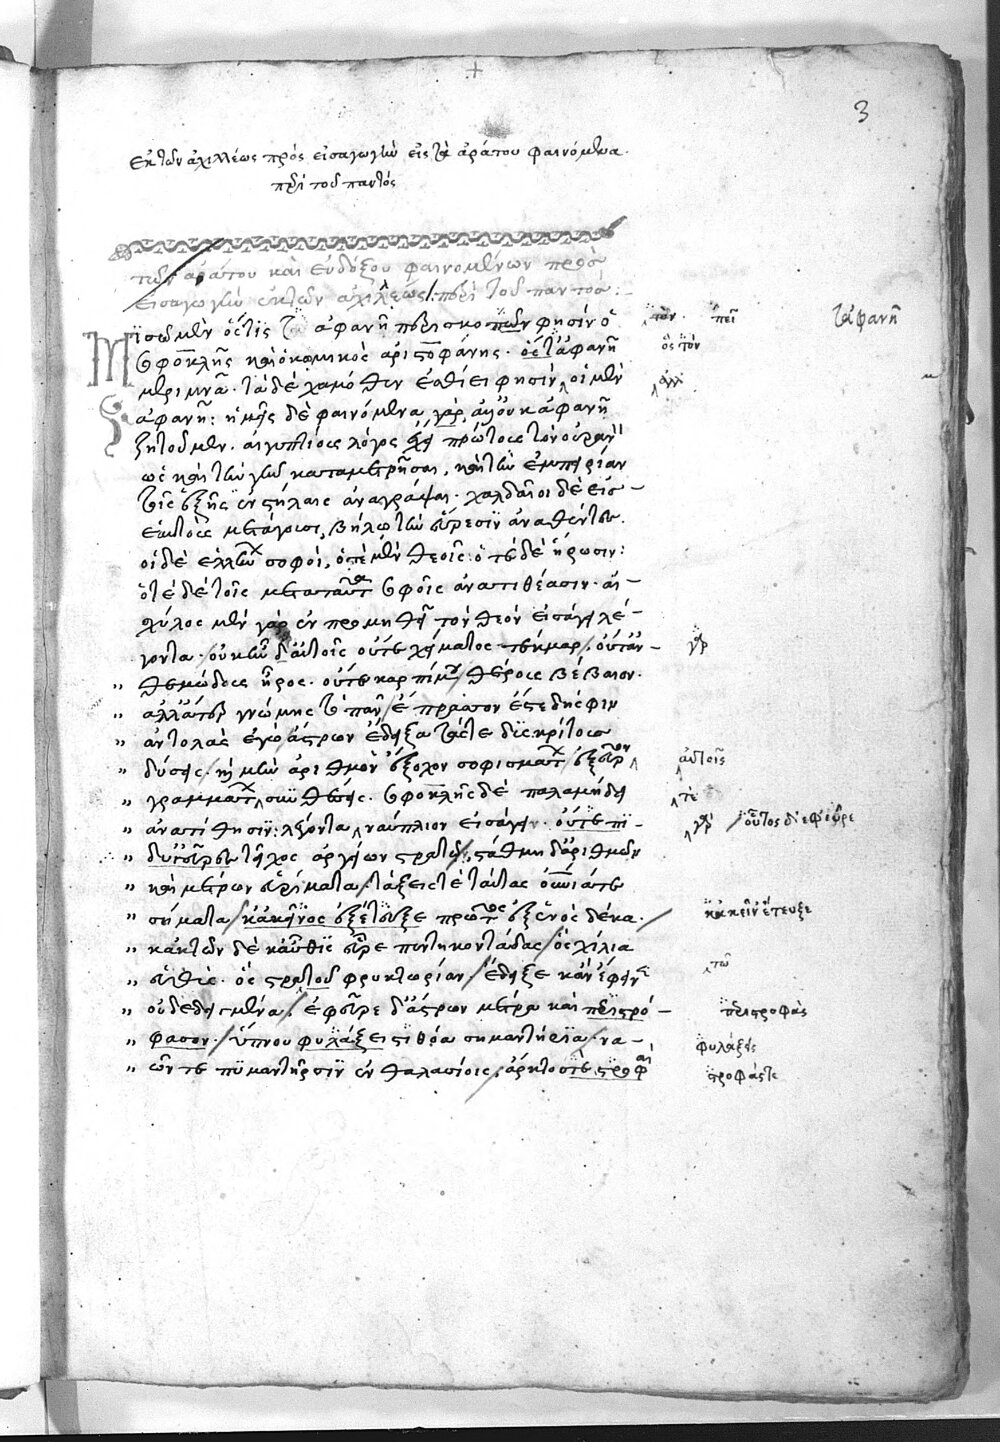 3
Ἐκ τῶν ἀχιλλέως πρὸς εἰσαγωγὴν εἰς τὰ ἀράτου φαινόμενα.
περὶ τοῦ παντός
τῶν ἀράτου καὶ εὐδόξου φαινομένων πρὸς
εἰσαγωγὴν ἐκ τῶν ἀχιλέως περὶ τοῦ παντός:
Μισῶ μὲν ὅστις τ ἀφανῆ περισκοπῶν φησὶν ὁ
σοφοκλῆς καὶ ὁ κωμικὸς ἀριστοφάνης. ὃς τἀφανῆ
μεριμνᾶ. τὰ δὲ χαμόθεν ἐσθίει φησὶν οἱ μὲν
ἀφανῆ: ἡμεῖς δὲ φαινόμενα γὰρ, ἀλλ' οὐκ ἀφανῆ
ζητοῦμεν. αἰγυπτίους λόγος ἔχει πρώτους τὸν οὐρανὸν
ὡς καὶ τὴν γῆν καταμετρῆσαι, καὶ τὴν ἐμπειρίαν
τοῖς ἑξῆς ἐν στήλαις ἀναγράψαι. χαλδαῖοι δὲ εἰς
ἑαυτοὺς μετάγουσι, βήλῳ τὴν εὕρεσιν ἀναθέντες.
οἱ δὲ ἑλλήνων σοφοὶ, ὁτὲ μὲν θεοῖς: ὁτὲ δὲ ἥρωσιν:
ὁτὲ δὲ τοῖς μετὰ ταῦτα σοφοῖς ἀνατιθέασιν. αἰ-
σχύλος μὲν γὰρ ἐν προμηθεῖ τὸν θεὸν εἰσάγει λέ-
γοντα. οὐκ ἦν δ' αὐτοῖς οὔτε χείματος τέκμαρ, οὔτ' ἀν-
" θεμώδους ἦρος. οὔτε καρπίμου θέρους βέβαιον.
" ἀλλ' ἄτερ γνώμης τὸ πᾶν ἔπρασσον ἔστε δή σφιν
" ἀντολὰς ἐγὼ ἄστρων ἔδειξα τάς τε δυσκρίτους
" δύσεις. καὶ μὴν ἀριθμὸν ἔξοχον σοφισμάτων ἐξεῦρον
" γραμμάτων συνθέσεις. σοφοκλῆς δὲ παλαμήδει
" ἀνατίθησιν: λέγοντα ναύπλιον εἰσάγει. οὔτε
" τεῖχος ἀργείων στρατῷ, στάθμη δ' ἀριθμῶν
" καὶ μέτρων εὑρήματα τάξεις τε ταύτας οὐράνιά τε
" σήματα κἀκεῖνος ἐξέτευξε πρῶτος ἐξ ἑνὸς δέκα.
" κἀκ τῶν δέκ' αὖθις εὗρε πεντηκοντάδας ὃς χίλια
" εὐθὺς. ὃς στρατοῦ φρυκτωρίαν ἔδειξε κἀνέφηνεν
" οὐ δεδειγμένα. ἐφεῦρε δ' ἄστρων μέτρα καὶ περιστρο-
" φασον. ὕπνου φυλάξει στιθόα σημαντήρια. να-
" ῶν τε ποιμαντῆρσιν ἐν θαλασσίοις. ἄρκτου τε στροφαὶ
ὃς τὸν
τἀφανῆ
γρ
αὐτοῖς
τε
οὗτος δ' ἐφεῦρε
κἀκεῖν' ἔτευξε
τῷ
περιστροφὰς
φυλάξεις
στροφάς τε